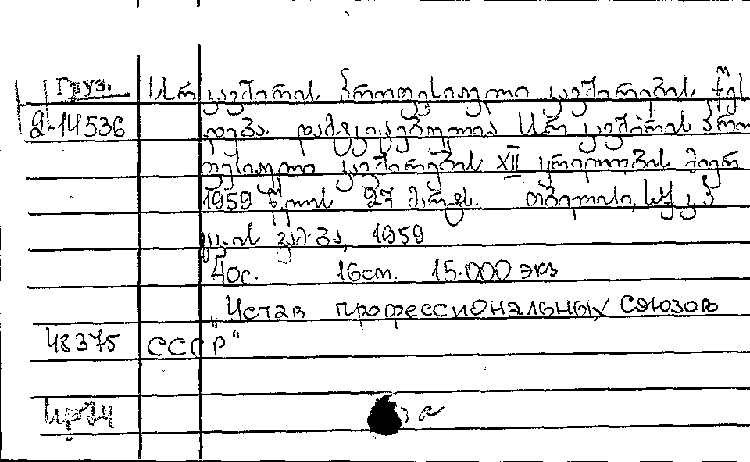 Груз. სსრ კავშირის პროფესიული კავშირების წეს
2-14536 დება. დამტკიცებულია სსრ კავშირის პრო
ფესიული კავშირების XII ყრილობის მიერ
1959 წლის 27 მარტს. თბილისი, სკკპ
ცკ-ის გამ-ბა, 1959
40с. 16см. 15.000 экз
„Устав профессиональных союзов
48375 СССР"